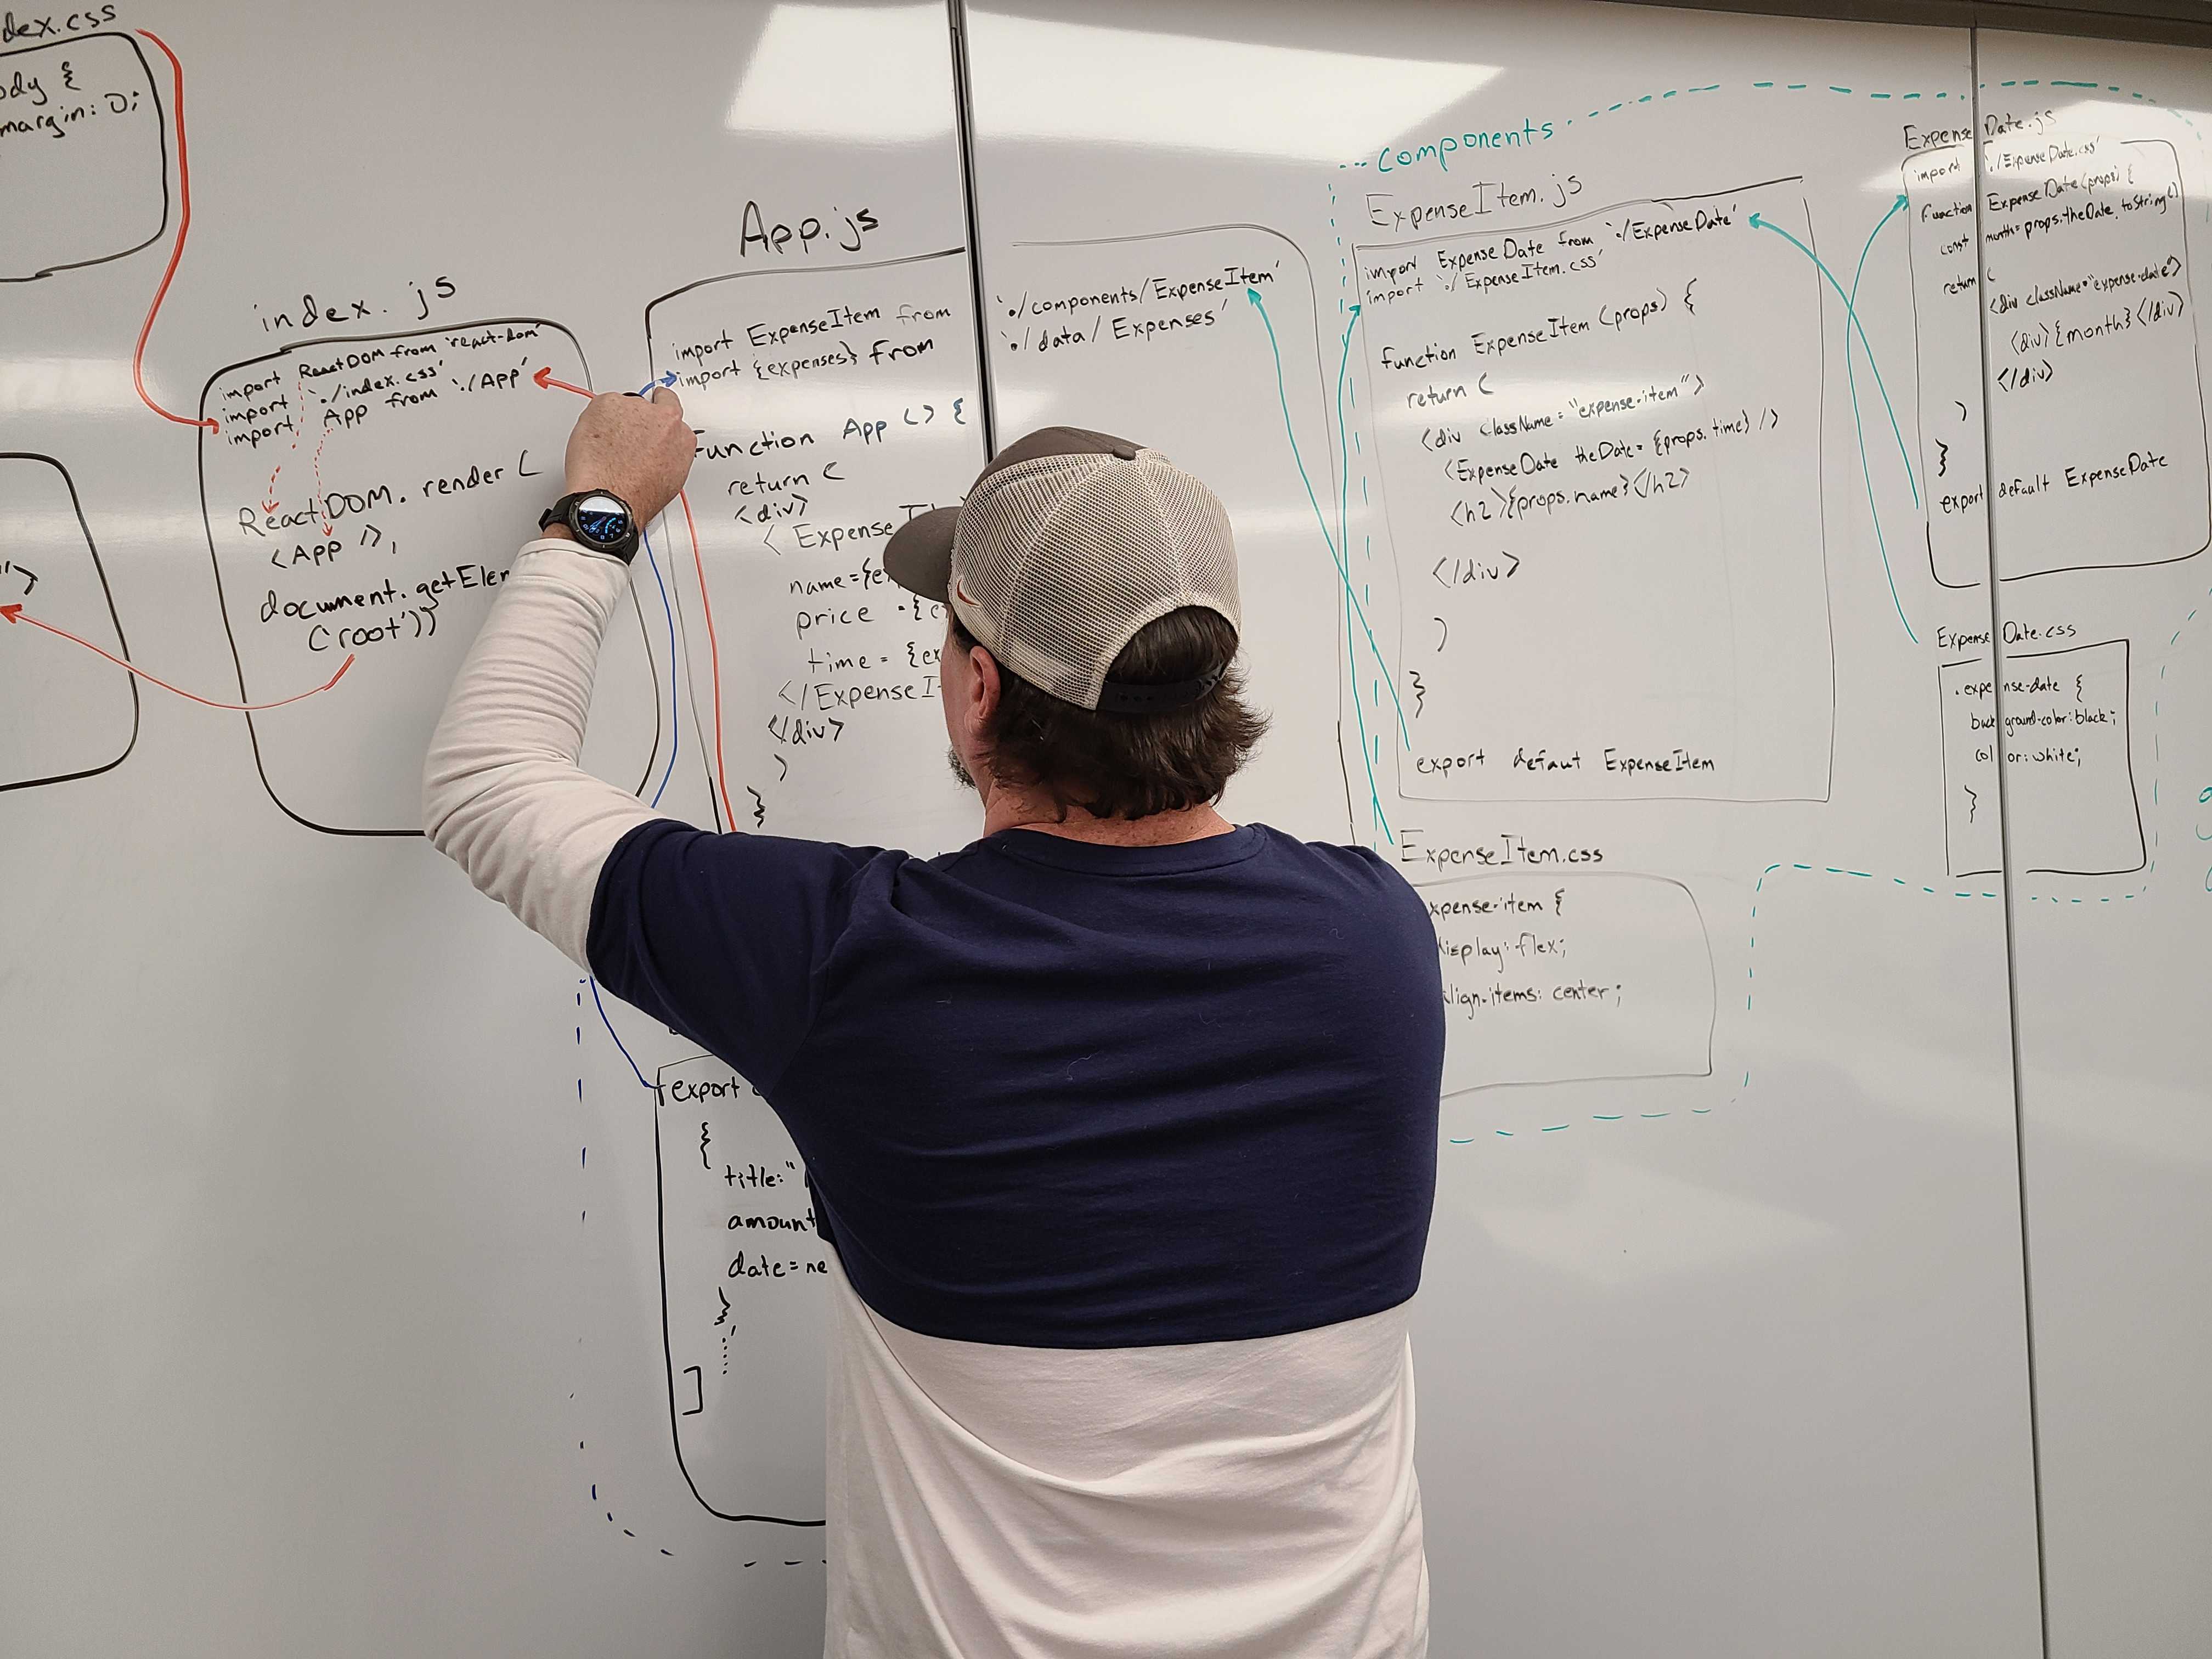 index.css
body {
margin: 0;
index.js
import ReactDOM from 'react-dom'
import './index.css'
import App from './App'
ReactDOM.render(
<App />,
document.getElem
('root'))
App.js
import ExpenseItem from './components/ExpenseItem'
import {expenses} from './data/Expenses'
Function App () {
return (
<div>
< Expense
name={e
price ={e
time = {ex
</ExpenseI
</div>
)
}
export
{
title: "
amount
date = ne
}
]
components
ExpenseItem.js
import ExpenseDate from './ExpenseDate'
import './ExpenseItem.css'
function ExpenseItem (props) {
return (
<div className = "expense-item">
<ExpenseDate theDate = {props.time} />
<h2>{props.name}</h2>
</div>
)
}
export defaut ExpenseItem
ExpenseItem.css
xpense-item {
display: flex;
align-items: center;
ExpenseDate.js
import './ExpenseDate.css'
function ExpenseDate(props) {
const month = props.theDate.toString()
return (
<div className="expense-date">
<div>{month}</div>
</div>
)
}
export default ExpenseDate
ExpenseDate.css
.expense-date {
background-color: black;
color: white;
}